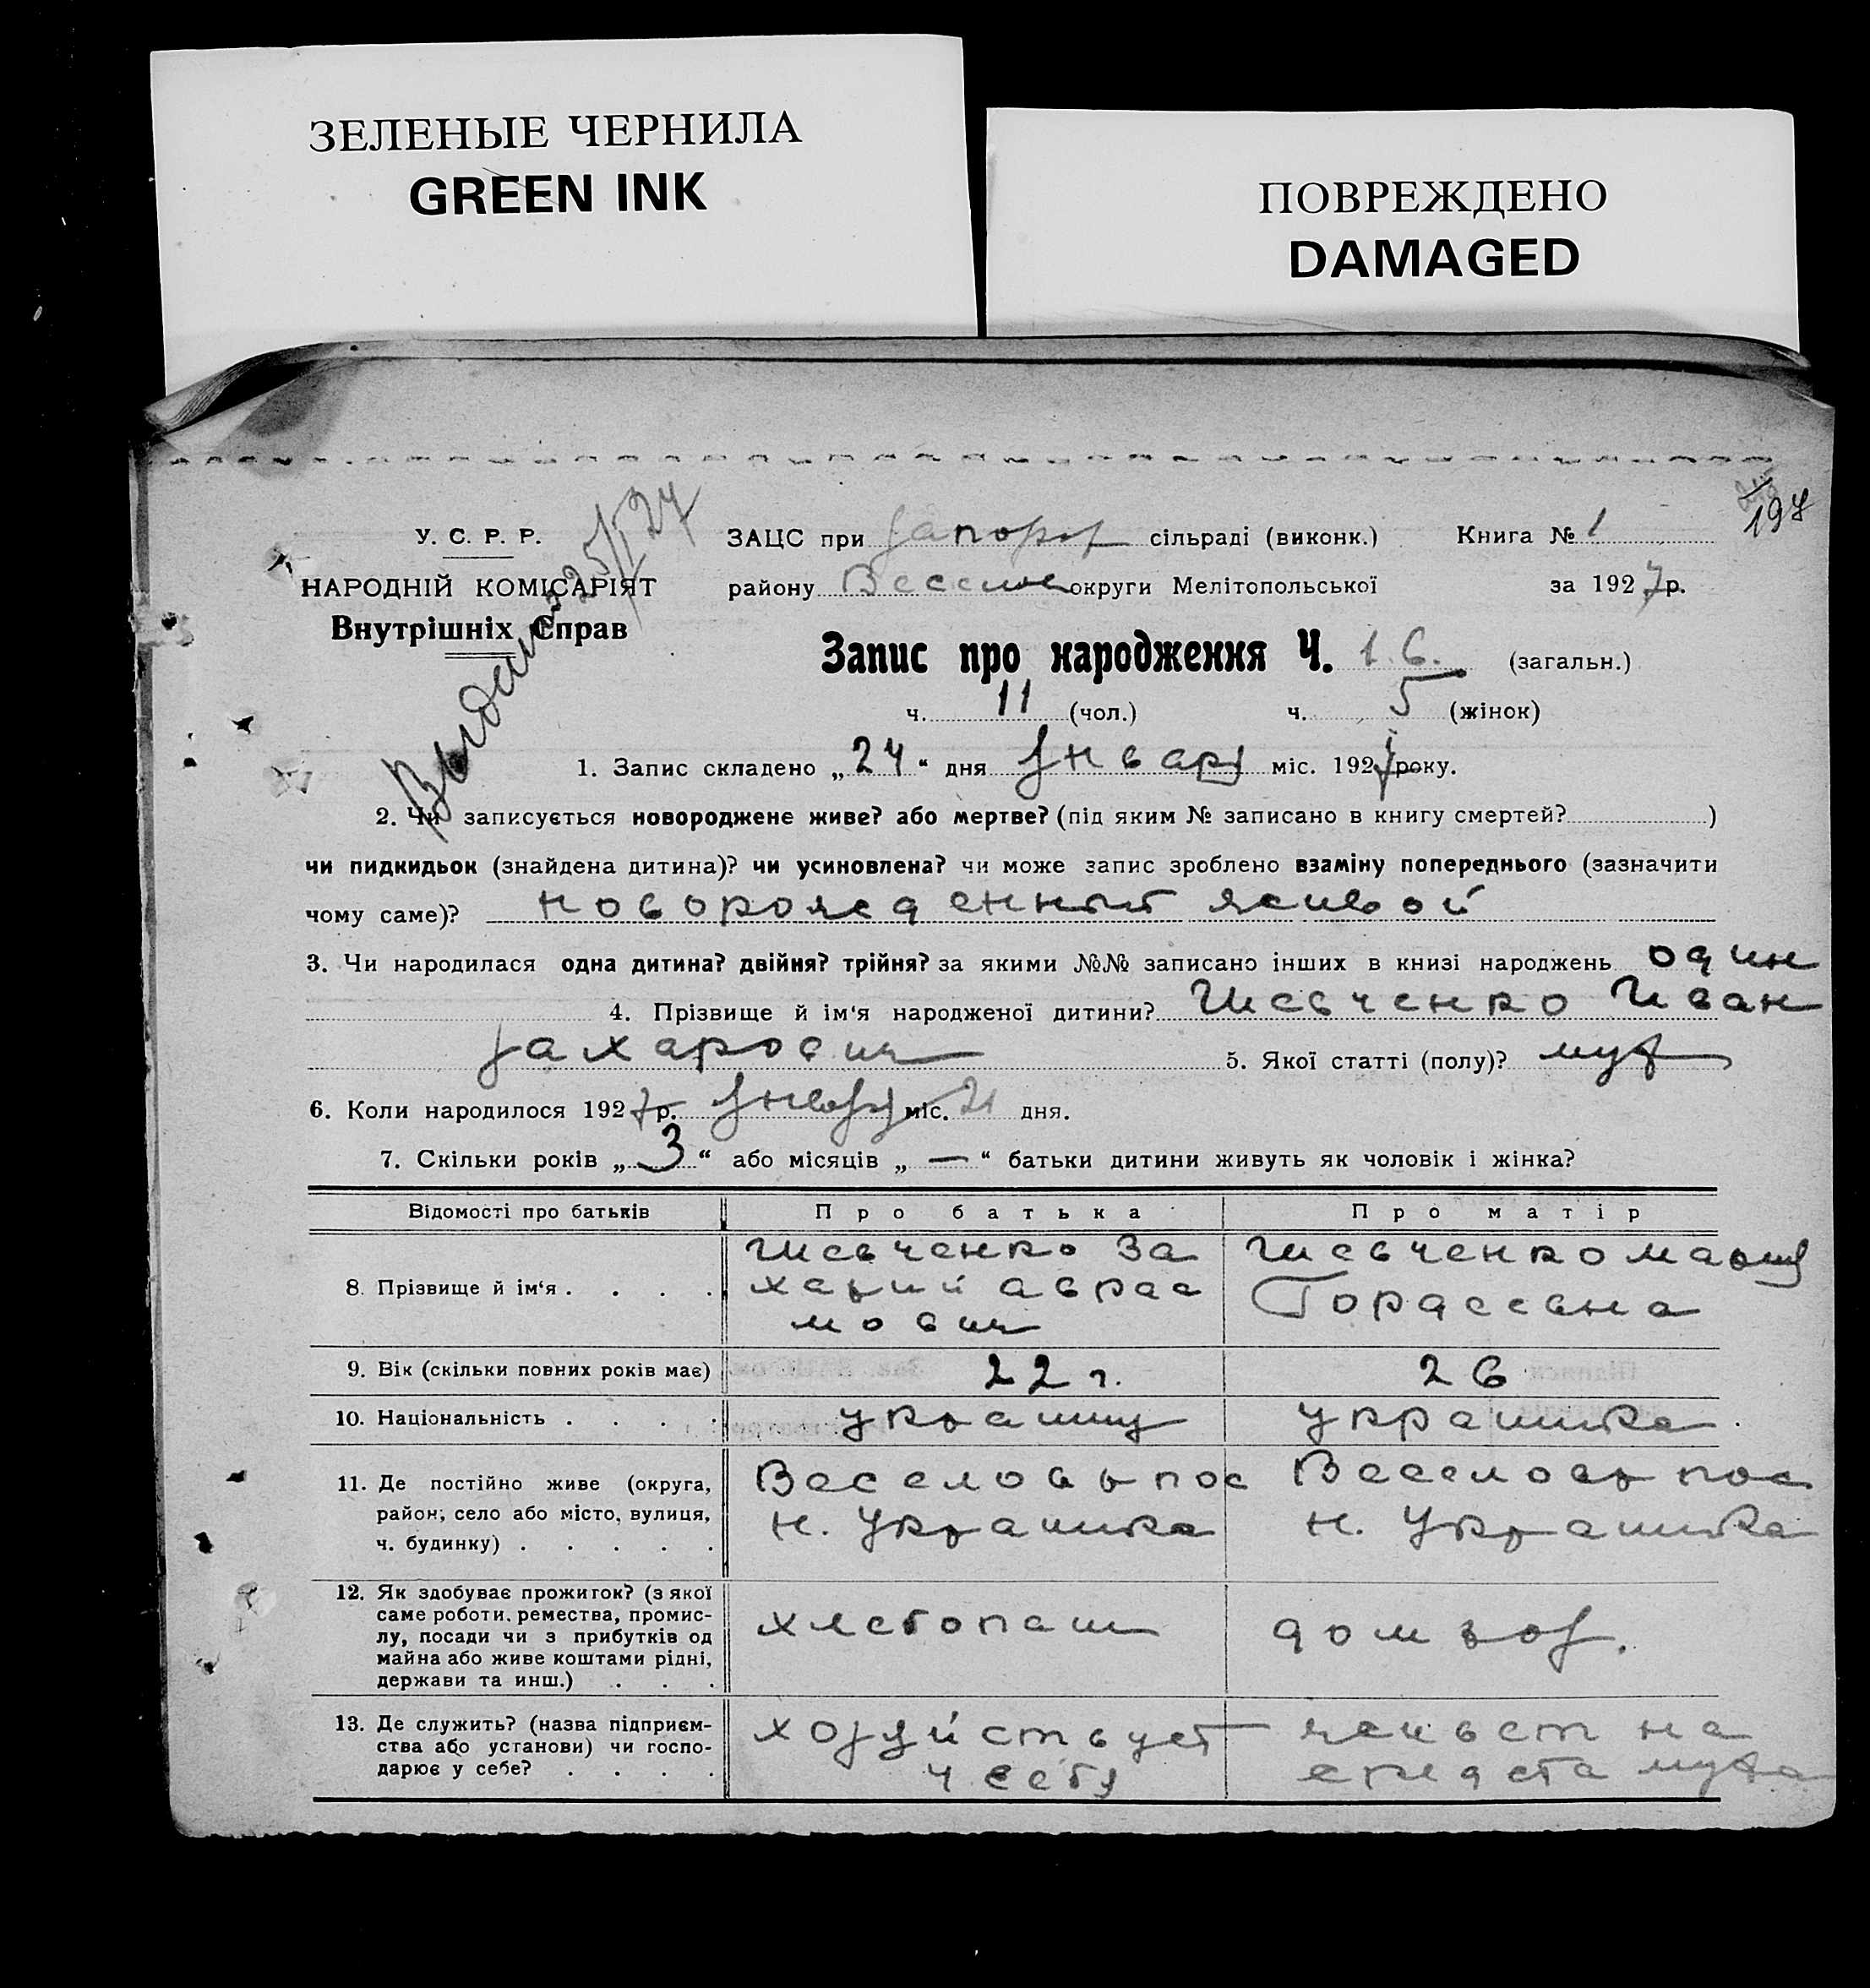 ЗЕЛЕНЫЕ ЧЕРНИЛА
GREEN INK
ПОВРЕЖДЕНО
DAMAGED
197
У. С. Р. Р.
НАРОДНІЙ КОМІСАРІЯТ
Внутрішніх Справ
ЗАЦС при Запорож сільраді (виконк.) Книга № 1
району Веселов округи Мелітопольської за 1927 р.
Запис про народження Ч. 16. (загальн.)
ч. 11 (чол.) ч. 5 (жінок)
1. Запис складено „24“ дня январ міс. 1927 року.
2. Чи записується новороджене живе? або мертве? (під яким № записано в книгу смертей? )
чи пидкидьок (знайдена дитина)? чи усиновлена? чи може запис зроблено взаміну попереднього (зазначити
чому саме)? новорожденный живой
3. Чи народилася одна дитина? двійня? трійня? за якими №№ записано інших в книзі народжень один
4. Прізвище й ім‘я народженої дитини? Шевченко Иван
Захарович 5. Якої статті (полу)? муж
6. Коли народилося 1927 р. январ міс. 21 дня.
7. Скільки років „3“ або місяців „—“ батьки дитини живуть як чоловік і жінка?
Відомості про батьків Про батька Про матір
8. Прізвище й ім‘я . . . .
Шевченко За
харий Авраа
мович
Шевченко Мария
Торасевна
9. Вік (скільки повних років має) 22 г. 26
10. Національність . . . . украинц украинка
11. Де постійно живе (округа,
район, село або місто, вулиця,
ч. будинку) . . . . .
Веселовр пос
Н. Украинка
Веселовр пос
Н. Украинка
12. Як здобуває прожиток? (з якої
саме роботи, ремества, промис-
лу, посади чи з прибутків од
майна або живе коштами рідні,
держави та инш.) . . .
хлебопаш
домхоз.
13. Де служить? (назва підприєм-
ства або установи) чи госпо-
дарює у себе? . . . .
хозуйствует
у себя
живет на
средста мужа